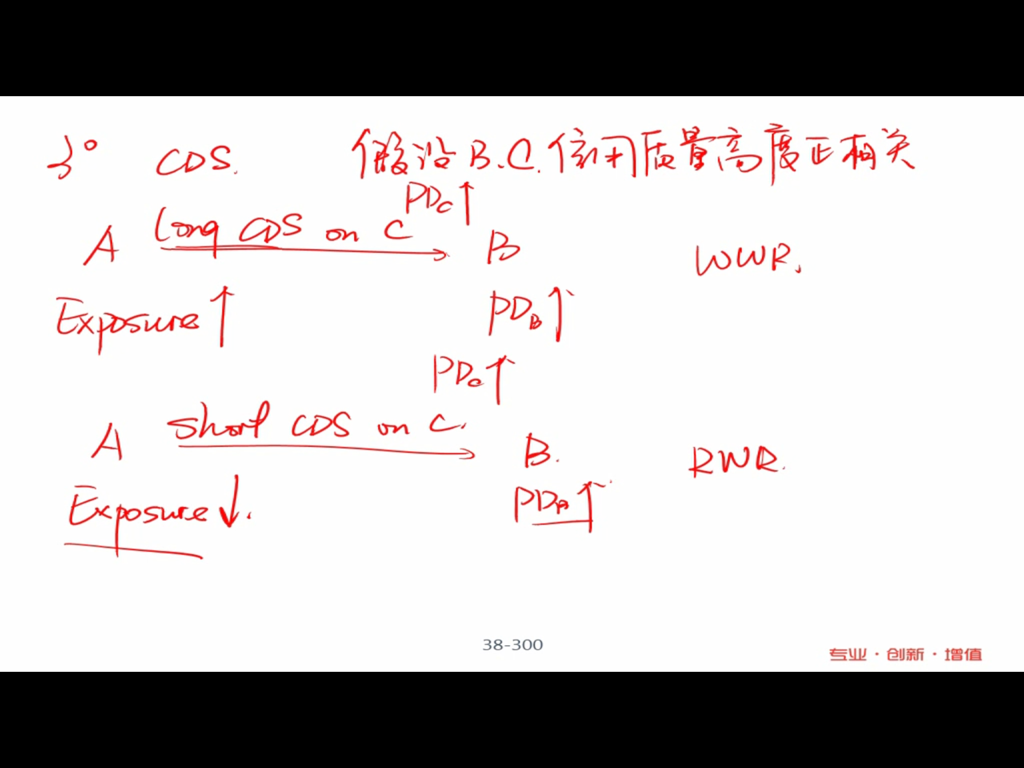 3° CDS. 假设B.C.信用质量高度正相关
PDc↑
A long CDS on C B WWR.
Exposure↑ PDB↑
PDc↑
A short CDS on C. B. RWR.
Exposure↓. PDB↑
38-300
专业·创新·增值